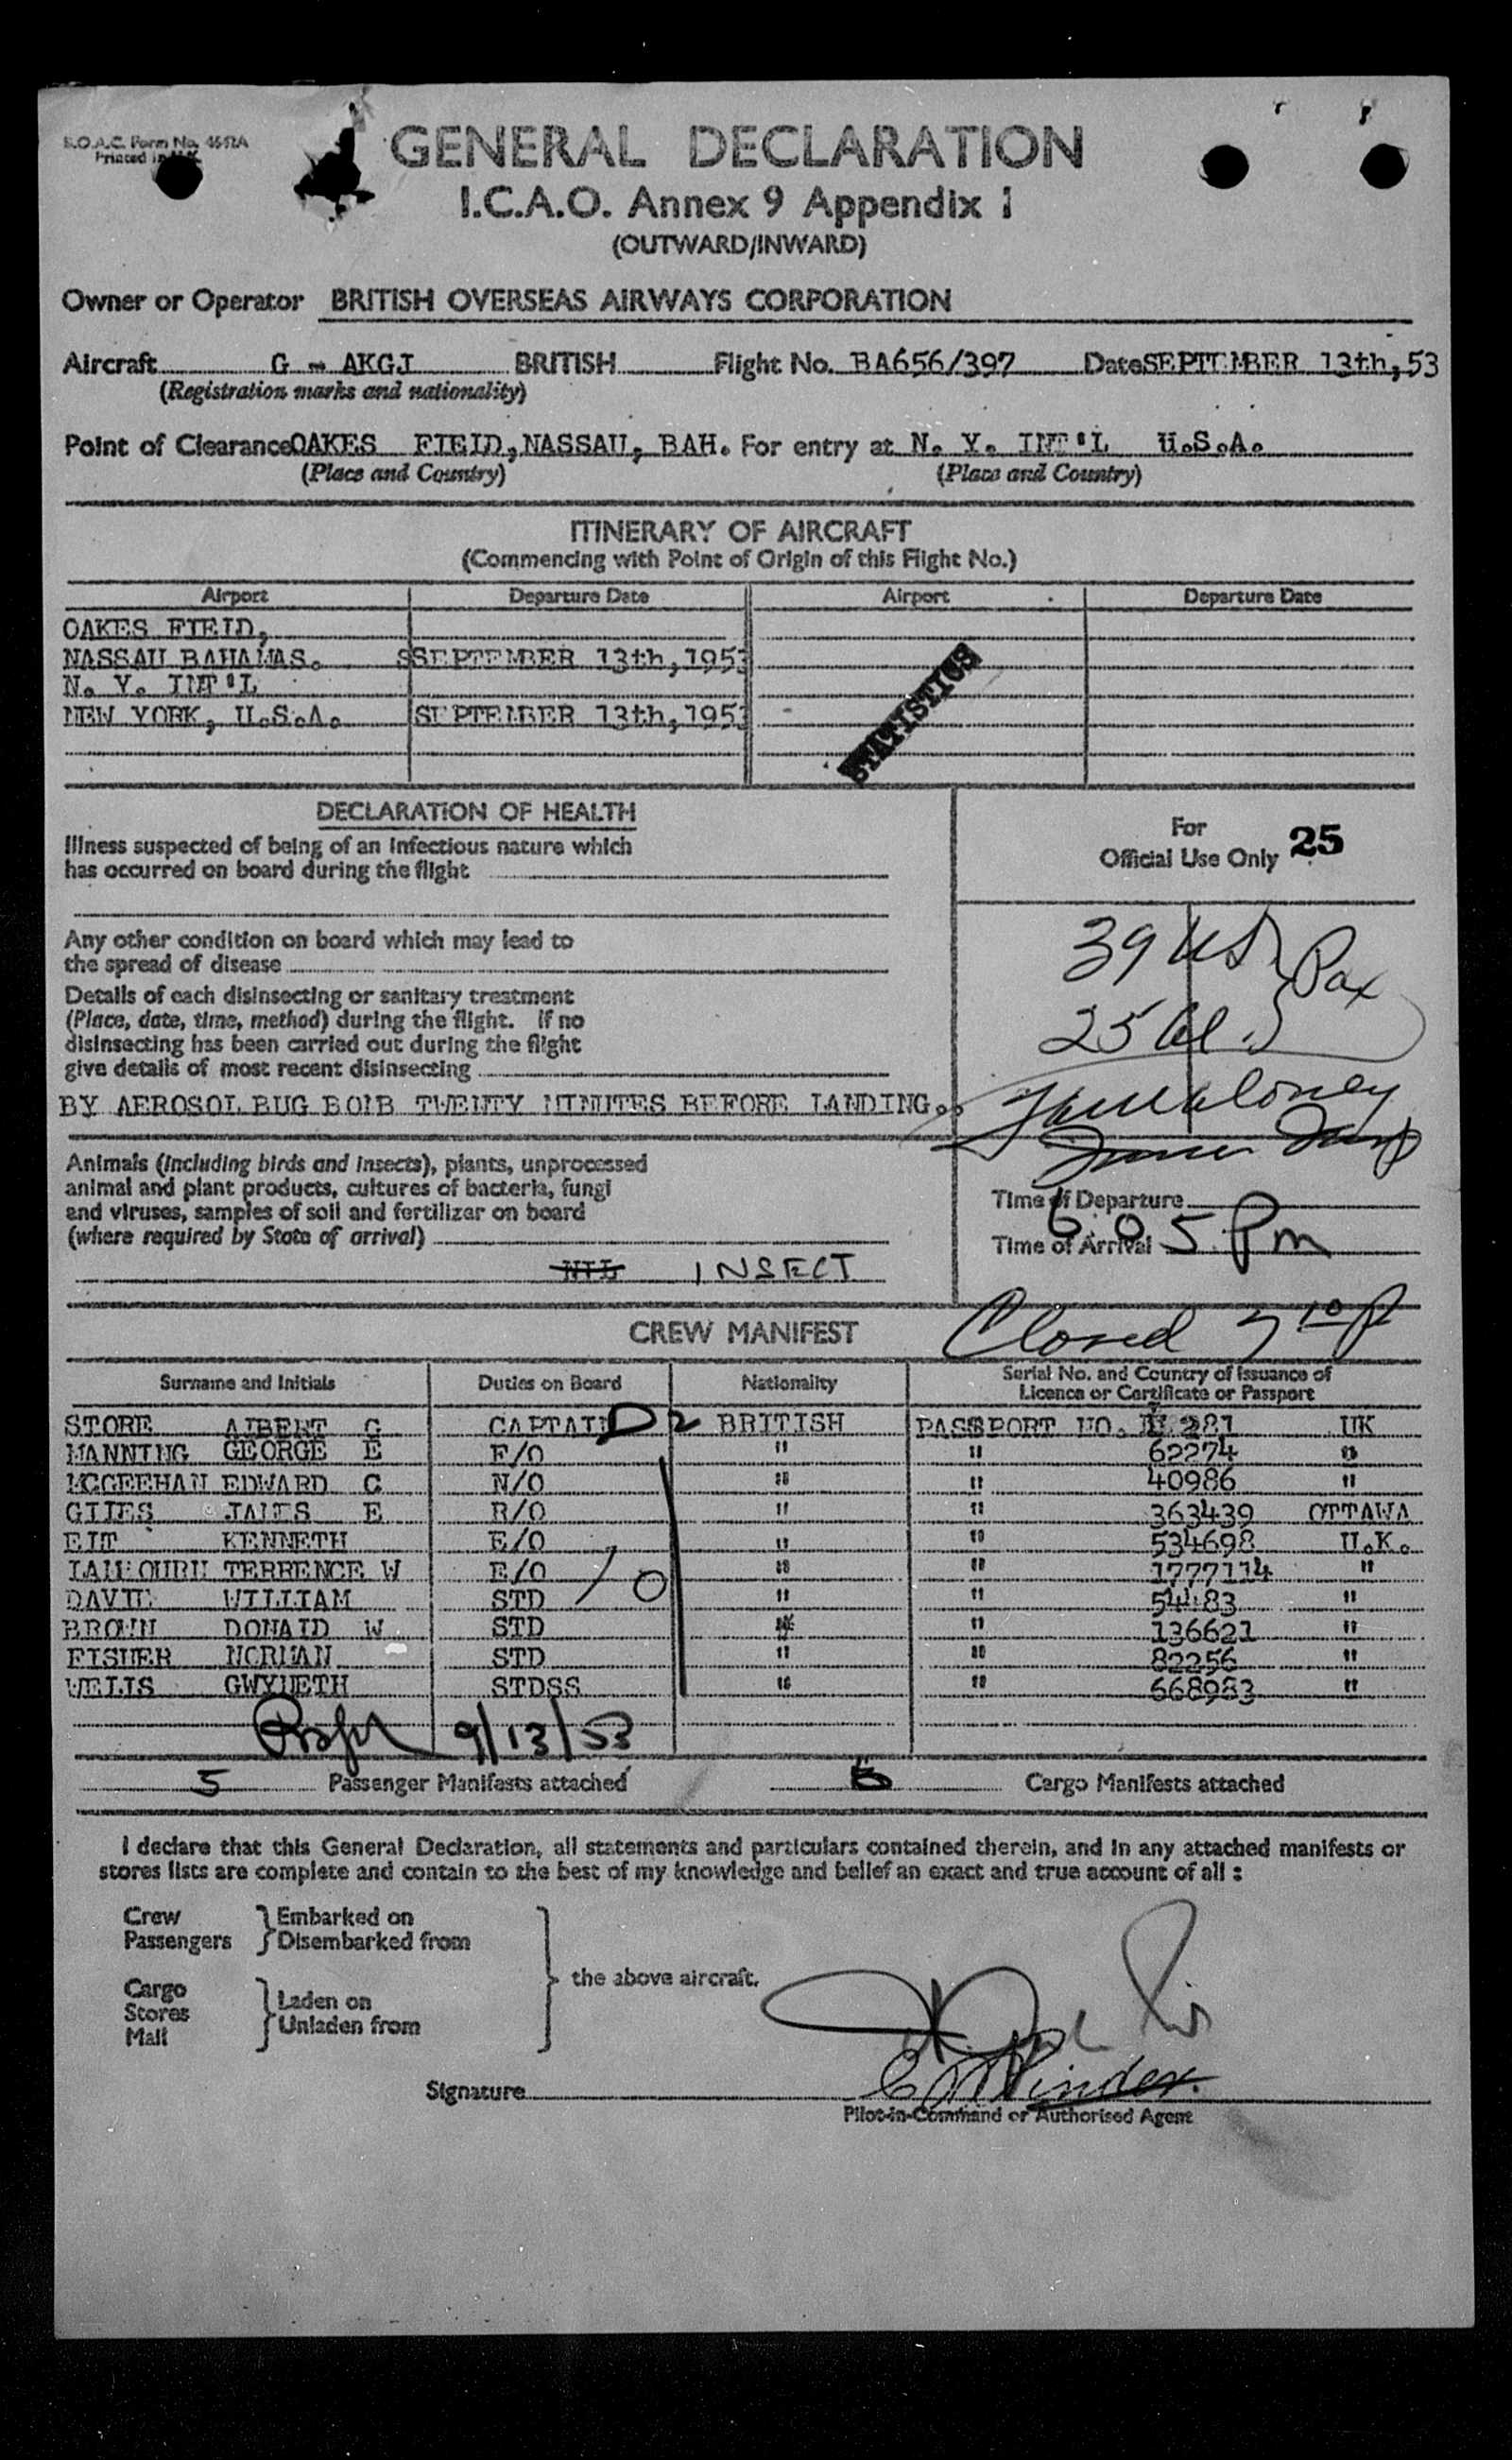 B.O.A.C. Form No. 4642A
Printed in U.K.
GENERAL DECLARATION
I.C.A.O. Annex 9 Appendix 1
(OUTWARD/INWARD)
Owner or Operator BRITISH OVERSEAS AIRWAYS CORPORATION
Aircraft G - AKGJ BRITISH Flight No. BA656/397 Date SEPTEMBER 13th, 53
(Registration marks and nationality)
Point of Clearance OAKES FIELD, NASSAU, BAH. For entry at N. Y. INT'L U.S.A.
(Place and Country) (Place and Country)
ITINERARY OF AIRCRAFT
(Commencing with Point of Origin of this Flight No.)
Airport Departure Date Airport Departure Date
OAKES FIELD,
NASSAU BAHAMAS. SSEPTEMBER 13th, 1953
N. Y. INT'L
NEW YORK, U.S.A. SEPTEMBER 13th, 1953
STATISTICS
DECLARATION OF HEALTH
Illness suspected of being of an infectious nature which
has occurred on board during the flight
For
Official Use Only 25
Any other condition on board which may lead to
the spread of disease
39 US
25 Al
Pax
Details of each disinsecting or sanitary treatment
(Place, date, time, method) during the flight. If no
disinsecting has been carried out during the flight
give details of most recent disinsecting
BY AEROSOL BUG BOMB TWENTY MINUTES BEFORE LANDING..
Animals (including birds and insects), plants, unprocessed
animal and plant products, cultures of bacteria, fungi
and viruses, samples of soil and fertilizer on board
(where required by State of arrival)
NIL INSECT
Time of Departure
Time of Arrival 6.05 Pm
Closed 7 10 P
CREW MANIFEST
Surname and Initials Duties on Board Nationality Serial No. and Country of Issuance of
Licence or Certificate or Passport
STORE ALBERT G CAPTAIN D2 BRITISH PASSPORT NO. 281 UK
MANNING GEORGE E F/O " " 62274 "
MCGEEHAN EDWARD C N/O " " 40986 "
GILES JAMES E R/O " " 363439 OTTAWA
KENNETH E/O " " 534698 U.K.
TERRENCE W E/O " " 1777114 "
DAVIE WILLIAM STD " " 54483 "
BROWN DONALD W STD " " 136621 "
FISHER NORMAN STD " " 82256 "
WELLS GWYNETH STDSS " " 668983 "
10
9/13/53
5 Passenger Manifests attached 5 Cargo Manifests attached
I declare that this General Declaration, all statements and particulars contained therein, and in any attached manifests or
stores lists are complete and contain to the best of my knowledge and belief an exact and true account of all :
Crew
Passengers
Embarked on
Disembarked from
Cargo
Stores
Mail
Laden on
Unladen from
the above aircraft.
Signature
Pilot-in-Command or Authorised Agent